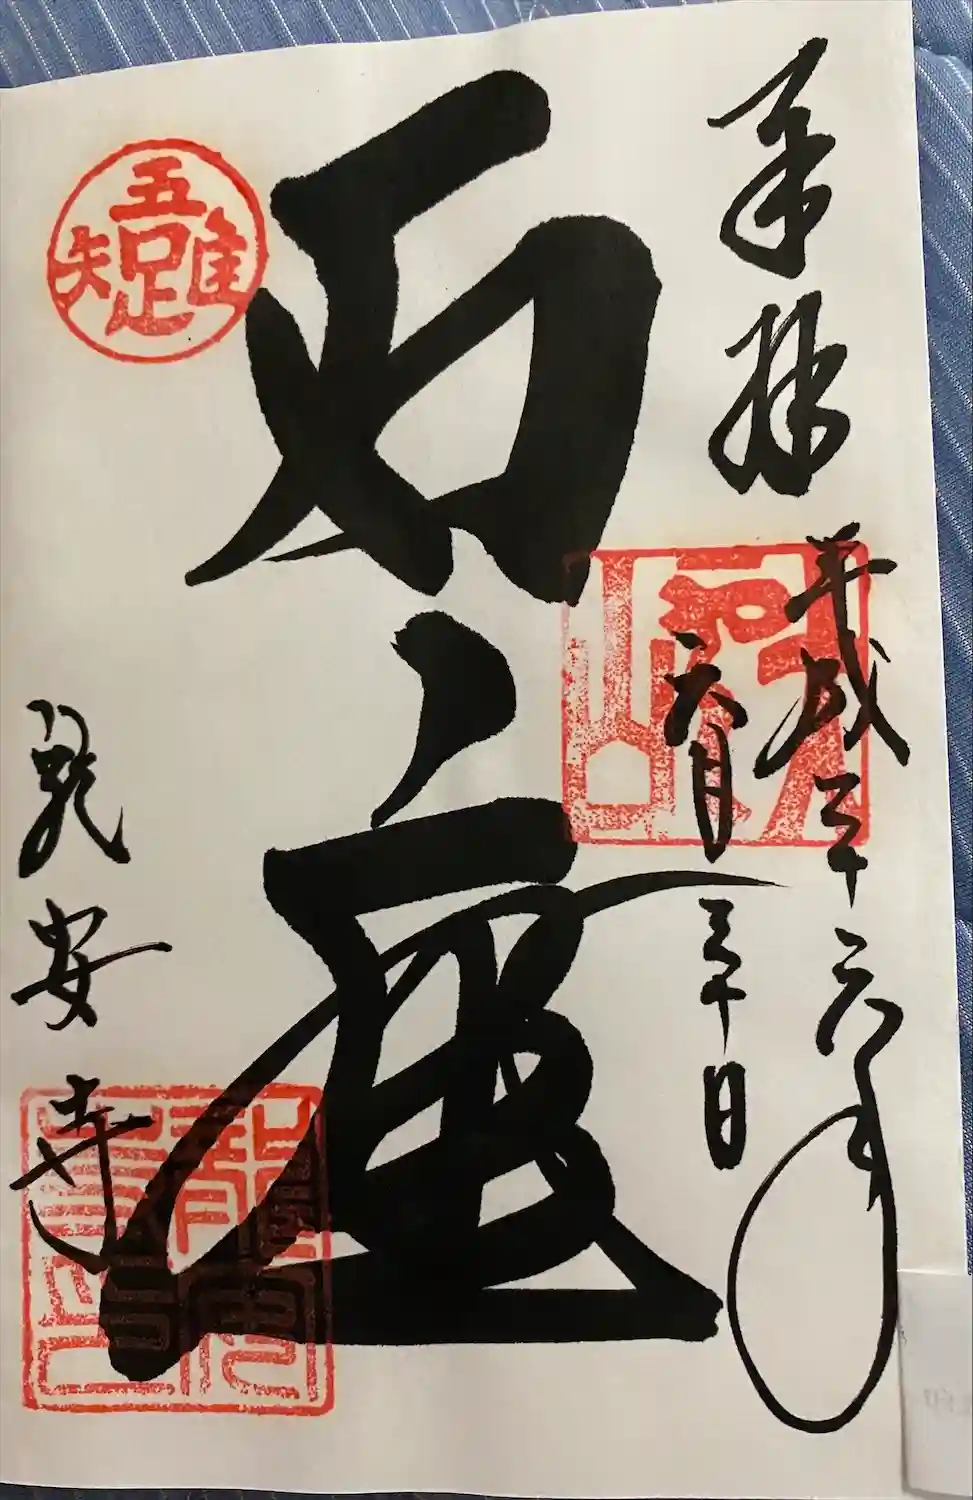 奉拝
平成二十六年
六月二十日
石庭
吾唯足知
龍安寺
龍安寺印